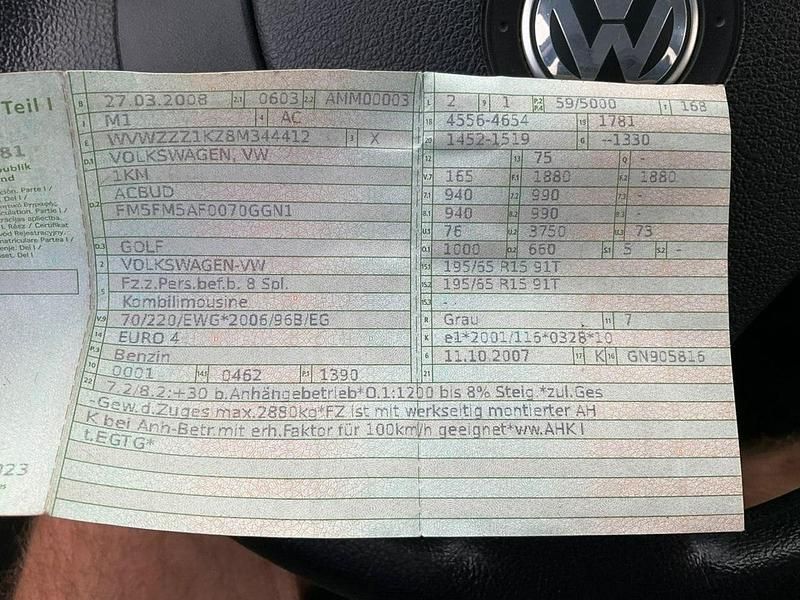 Teil I
81
publik
nd
B 27.03.2008 2.1 0603 2.2 AMM00003
J M1 4 AC
E WVWZZZ1KZ8M344412 3 X
D.1 VOLKSWAGEN, VW
1KM
D.2 ACBUD
FM5FM5AF0070GGN1
D.3 GOLF
2 VOLKSWAGEN-VW
5 Fz.z.Pers.bef.b. 8 Spl.
Kombilimousine
V.9 70/220/EWG*2006/96B/EG
14 EURO 4
P.3 Benzin
10 0001 14.1 0462 P.1 1390
L 2 9 1 P.2 P.4 59/5000 T 168
18 4556-4654 19 1781
20 1452-1519 G --1330
12 13 75 Q -
V.7 165 F.1 1880 F.2 1880
7.1 940 7.2 990 7.3 -
8.1 940 8.2 990 8.3 -
U.1 76 U.2 3750 U.3 73
O.1 1000 O.2 660 S.1 5 S.2 -
15.1 195/65 R15 91T
15.2 195/65 R15 91T
15.3 -
R Grau 11 7
K e1*2001/116*0328*10
6 11.10.2007 17 K 16 GN905816
21
22 7.2/8.2:+30 b.Anhängebetrieb*O.1:1200 bis 8% Steig.*zul.Ges
-Gew.d.Zuges max.2880kg*FZ ist mit werkseitig montierter AH
K bei Anh-Betr.mit erh.Faktor für 100km/h geeignet*ww.AHK l
t.EGTG*
023